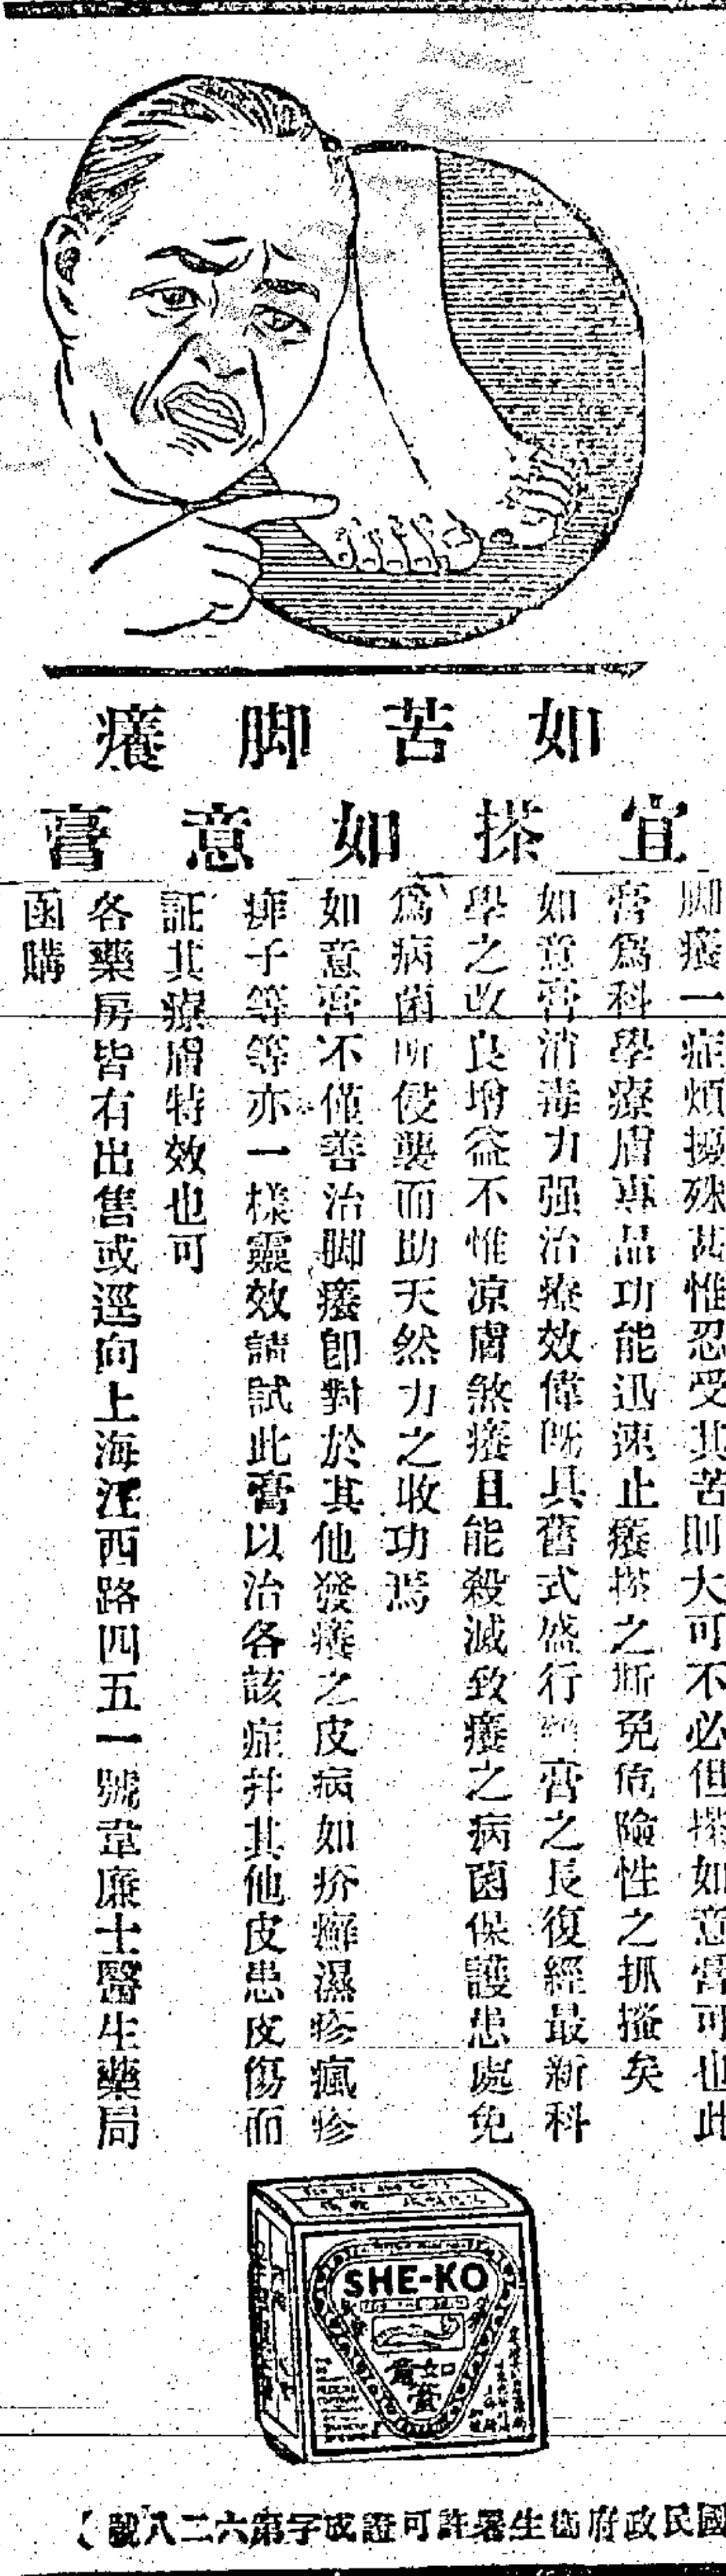 如苦脚癢
宜搽如意膏
脚癢一症煩擾殊甚惟忍受其苦則大可不必但搽如意膏可也此
膏爲科學療膚專品功能迅速止癢搽之斯免危險性之抓搔矣
如意膏消毒力强治療效偉既具舊式盛行膏之長復經最新科
學之改良增益不惟凉膚煞癢且能殺滅致癢之病菌保護患處免
爲病菌所侵襲而助天然力之收功焉
如意膏不僅善治脚癢卽對於其他發癢之皮病如疥癬濕疹瘋疹
痱子等等亦一樣靈效請試此膏以治各該症并其他皮患皮傷而
証其療膚特效也可
各藥房皆有出售或逕向上海江西路四五一號韋廉士醫生藥局
函購
SHE-KO
如意膏
國民政府衞生署許可證成字第六二八號